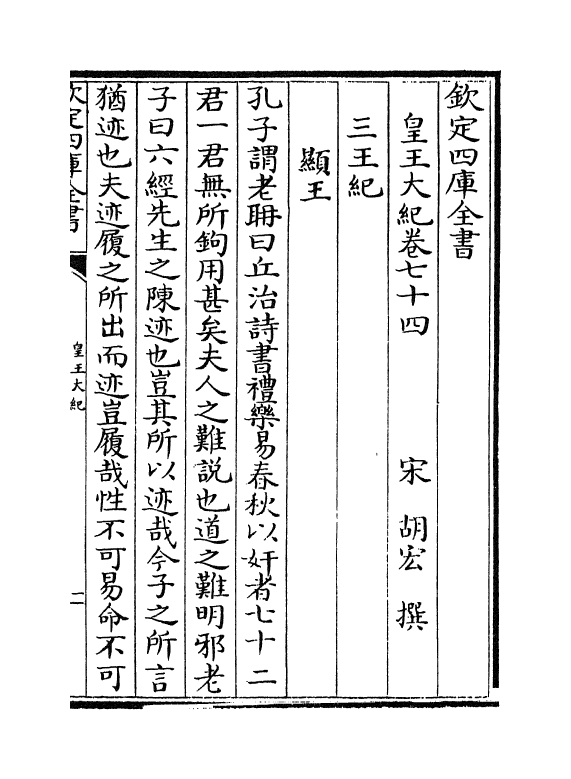 欽定四庫全書
皇王大紀卷七十四　宋　胡宏　撰
三王紀
顯王
孔子謂老聃曰丘治詩書禮樂易春秋以奸者七十二
君一君無所鉤用甚矣夫人之難説也道之難明邪老
子曰六經先生之陳迹也豈其所以迹哉今子之所言
猶迹也夫迹履之所出而迹豈履哉性不可易命不可
欽定四庫全書
皇王大紀